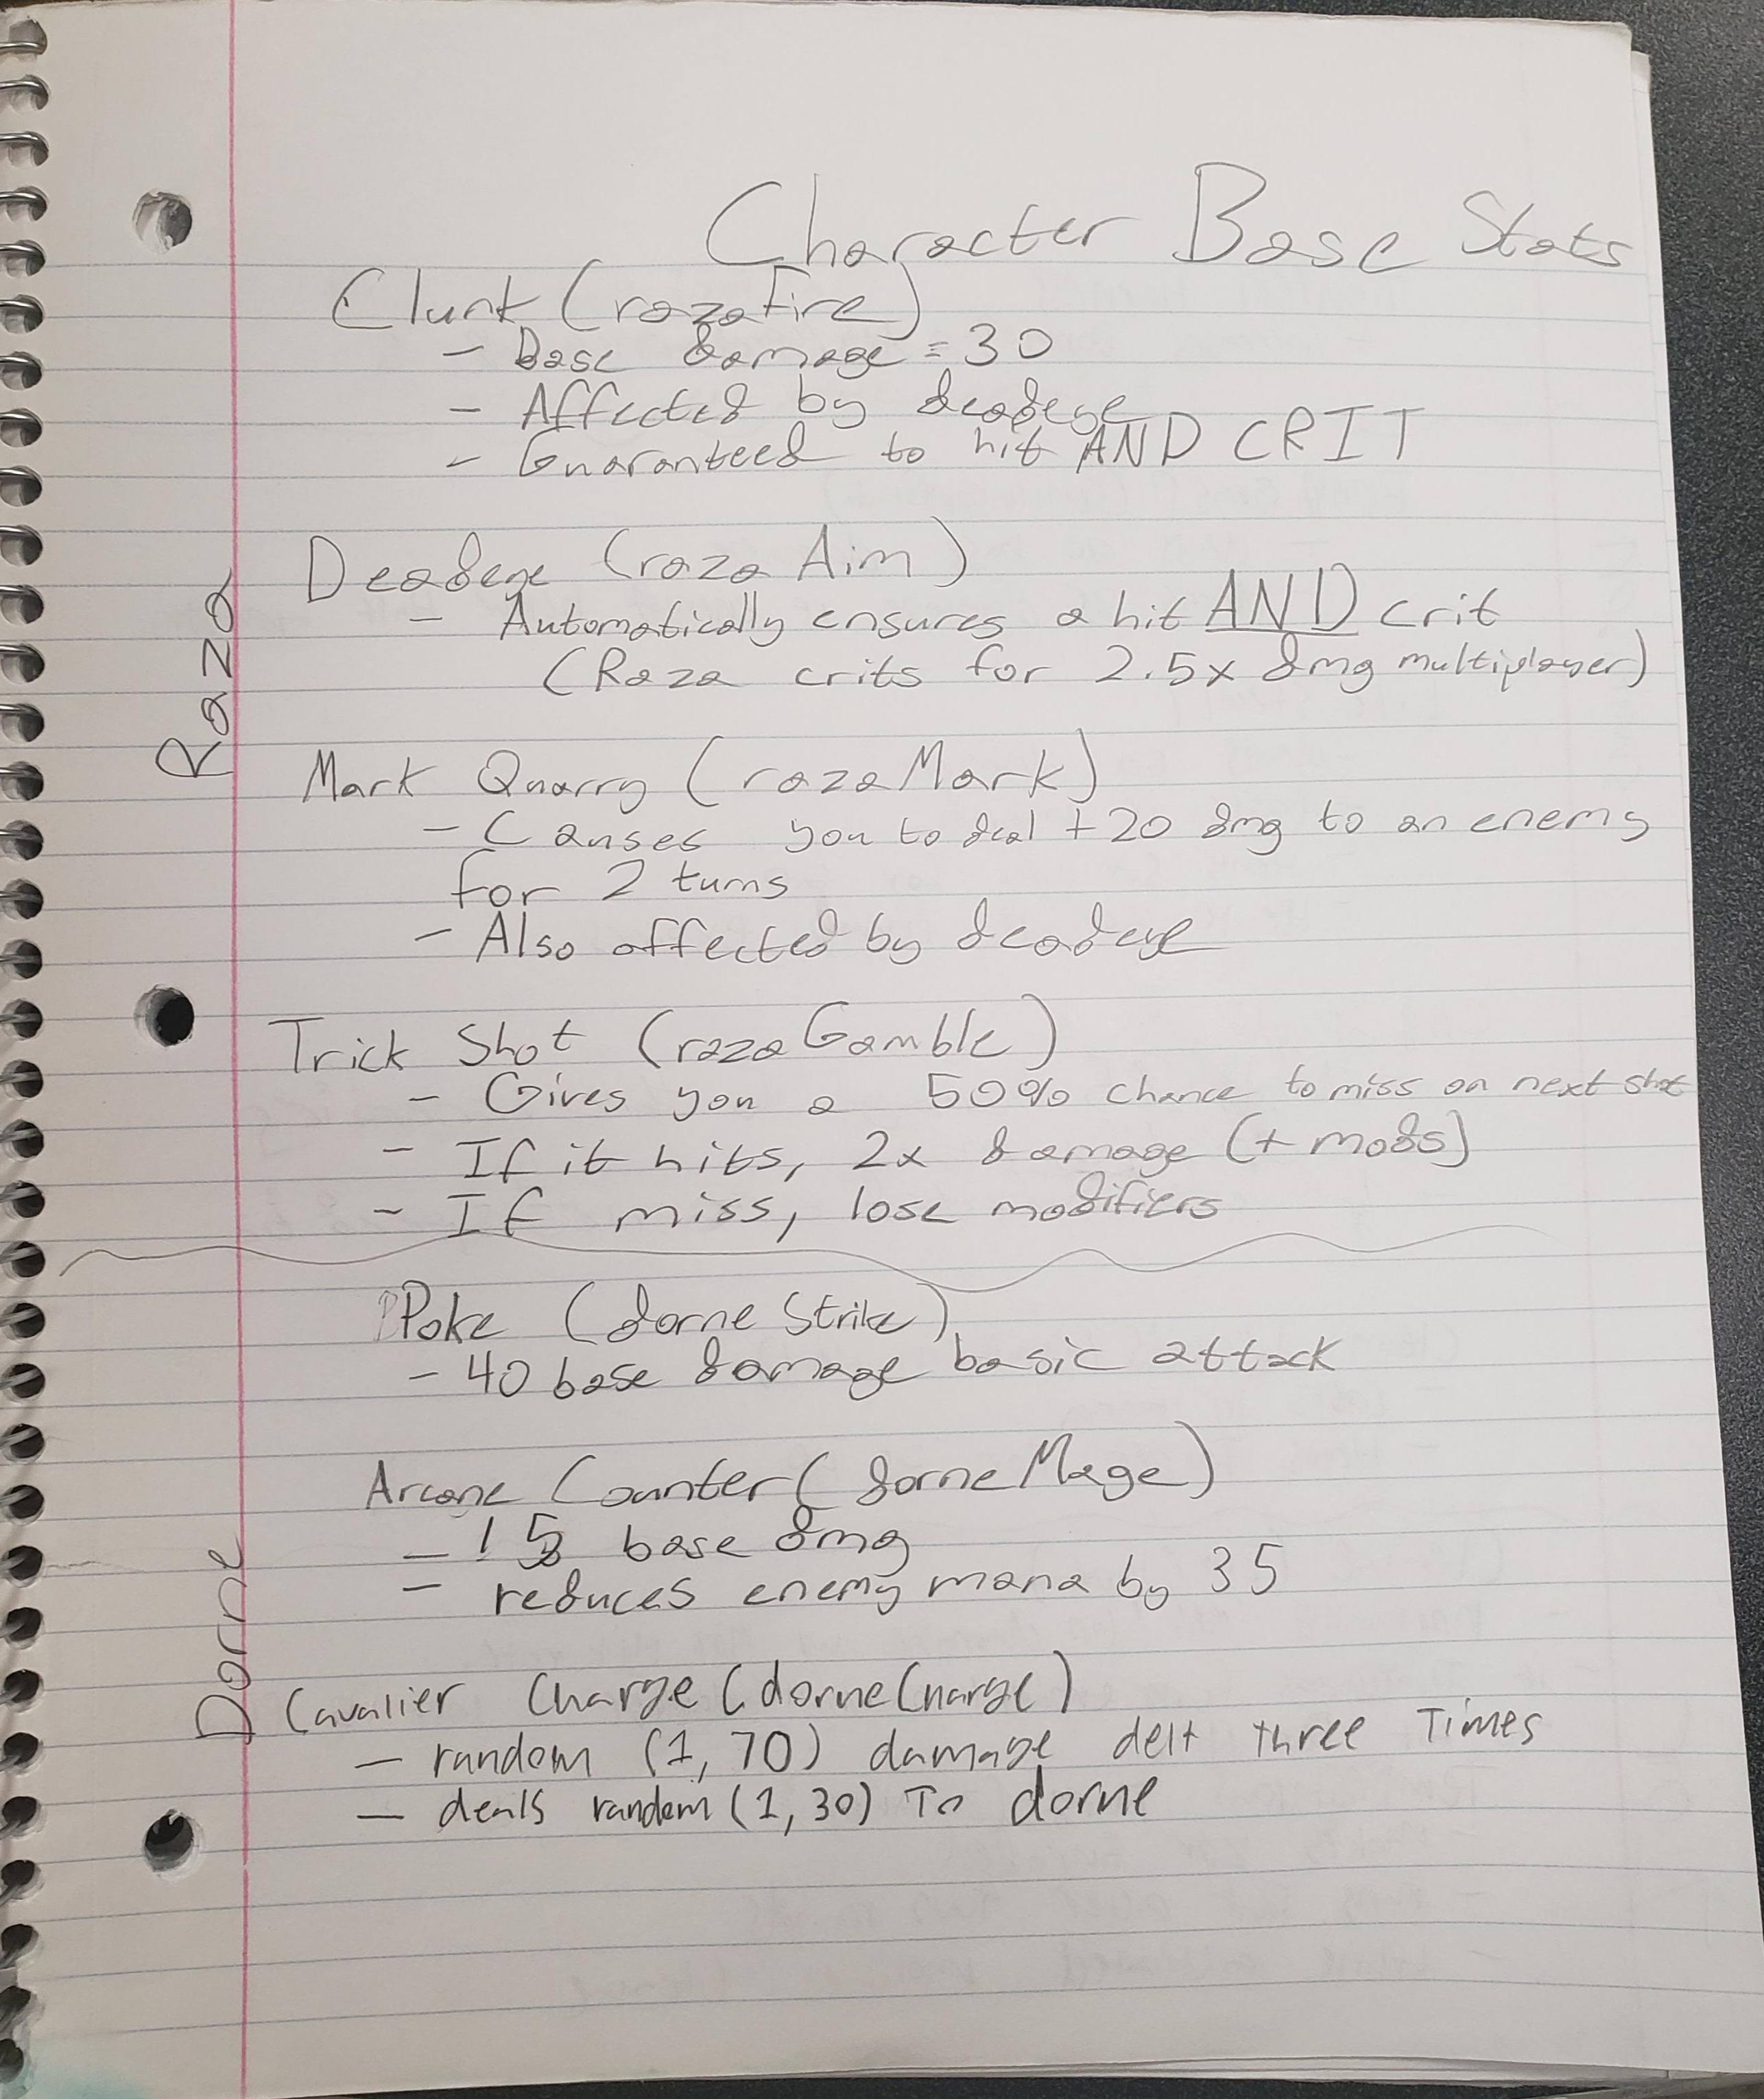 Character Base Stats
Clunk (razaFire)
- Base damage = 30
- Affected by deadeye
- Guaranteed to hit AND CRIT
Raza
Deadeye (razaAim)
- Automatically ensures a hit AND crit
(Raza crits for 2.5x dmg multiplayer)
Mark Quarry (razaMark)
- Causes you to deal +20 dmg to an enemy
for 2 turns
- Also affected by deadeye
Trick Shot (razaGamble)
- Gives you a 50% chance to miss on next shot
- If it hits, 2x damage (+ mods)
- If miss, lose modifiers
Dorne
Poke (dorneStrike)
- 40 base damage basic attack
Arcane Counter (dorneMage)
- 15 base dmg
- reduces enemy mana by 35
Cavalier Charge (dorneCharge)
- random (1, 70) damage delt three Times
- deals random (1, 30) To dorne